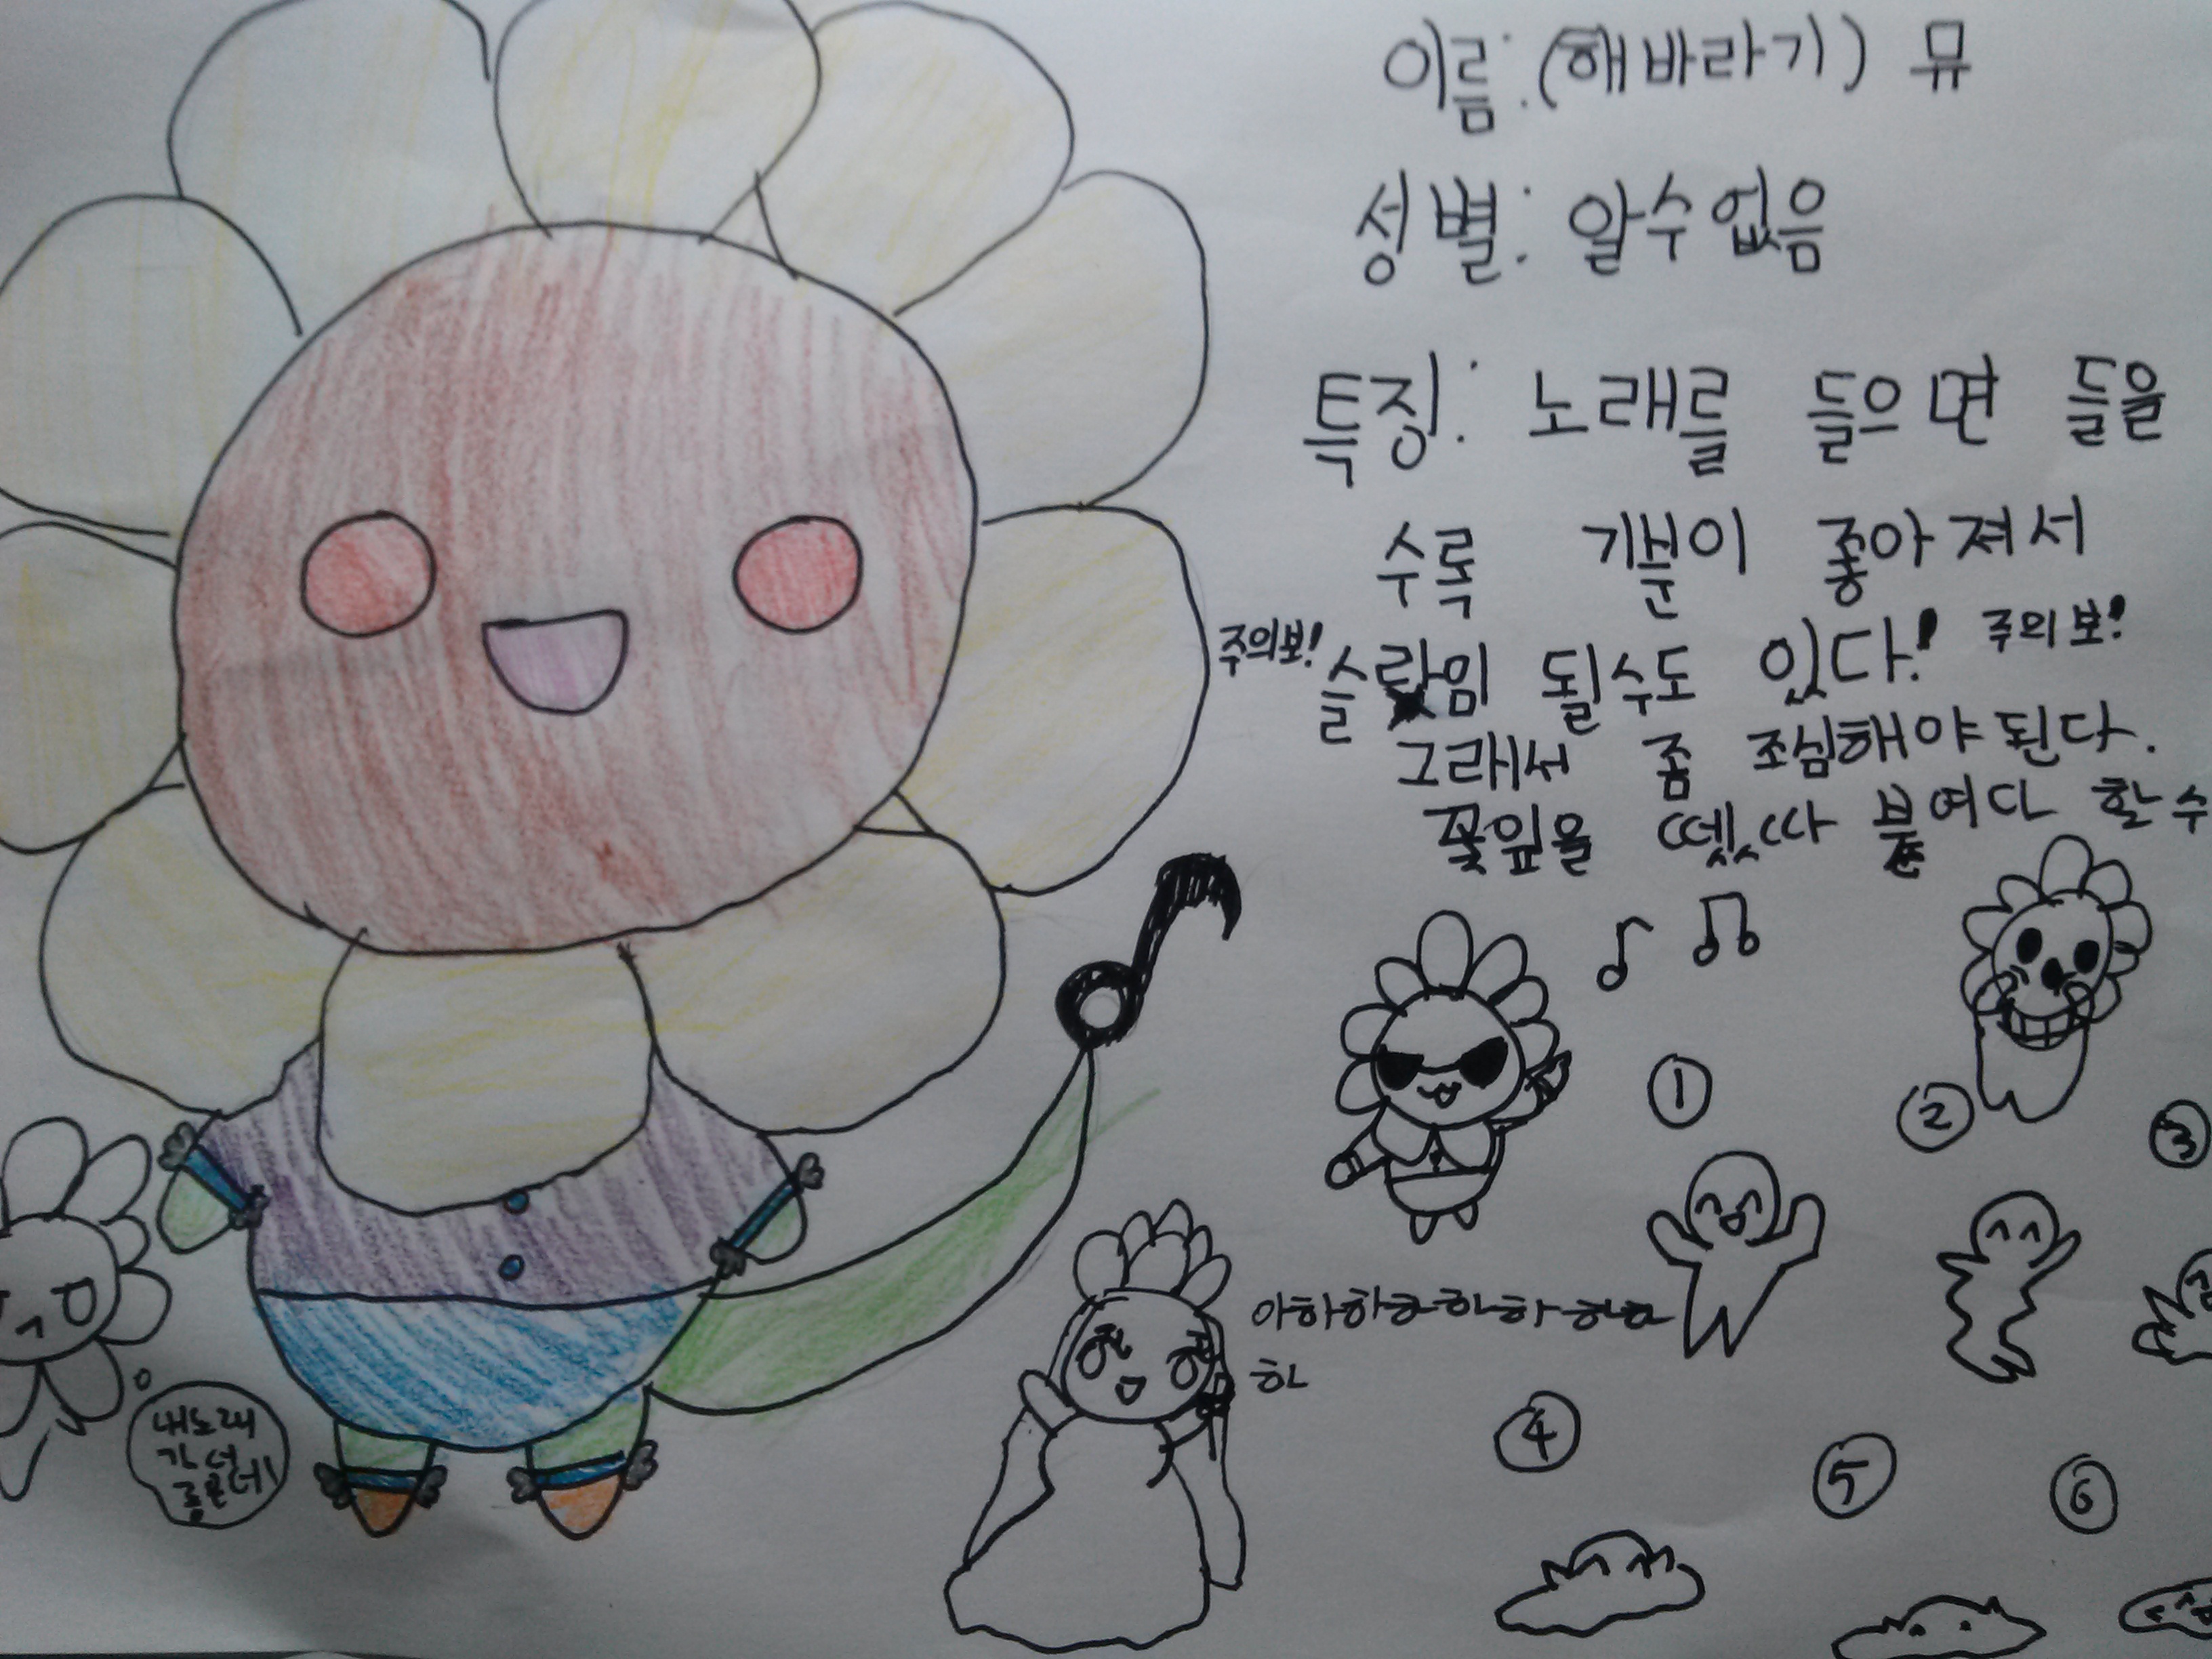 이름:(해바라기) 뮤
성별: 알수없음
특징: 노래를 들으면 들을
수록 기분이 좋아져서
주의보! 슬라임 될수도 있다! 주의보!
그래서 좀 조심해야된다.
꽃잎을 뗐따 붙여다 할수
①
②
③
아하하하하하하하
하
④
⑤
⑥
내노래
가 더
좋은데!